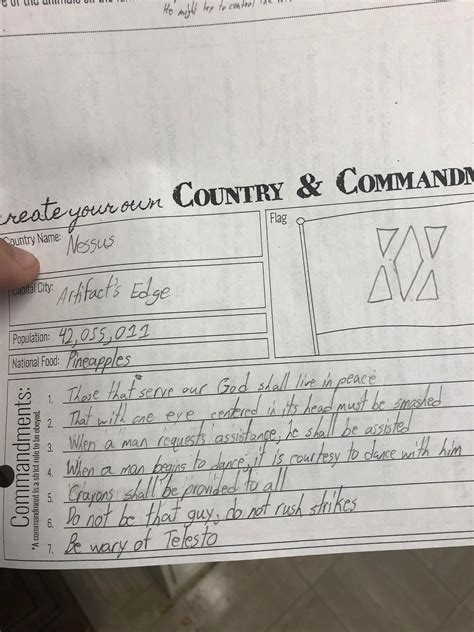 He might try to control the
create your own COUNTRY & COMMANDM
Country Name: Nessus
Flag
Capital City: Artifact's Edge
Population: 42,055,011
National Food: Pineapples
Commandments:
*A commandment is a strict rule to be obeyed.
1. Those that serve our God shall live in peace
2. That with one eye centered in its head must be smashed
3. When a man requests assistance, he shall be assisted
4. When a man begins to dance, it is courtesy to dance with him
5. Crayons shall be provided to all
6. Do not be that guy, do not rush strikes
7. Be wary of Telesto